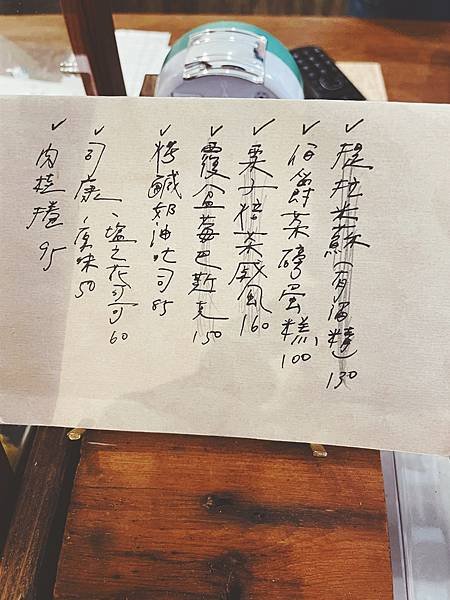 ✓提拉米蘇(有酒精) 130
✓伯爵茶磅蛋糕 100
✓栗子焙茶戚風 160
✓覆盆莓巴斯克 150
✓烤鹹奶油吐司 85
✓司康、鹽之花可可 60
、原味 50
✓肉桂捲 95